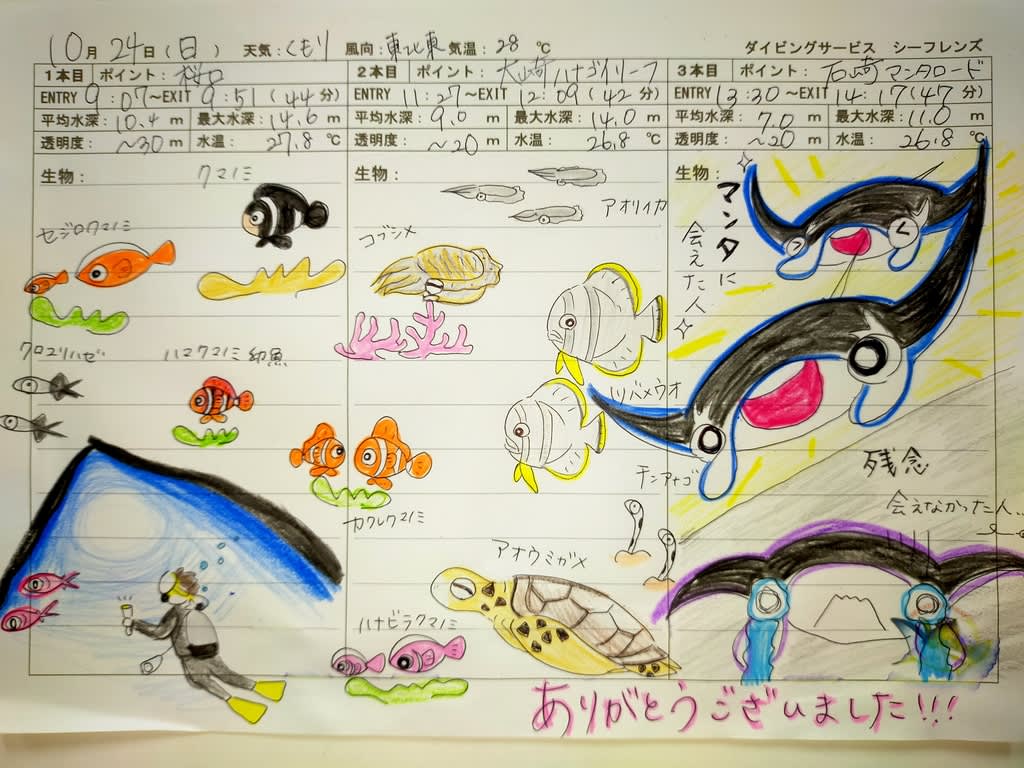 10月 24日（日） 天気：くもり 風向：東北東 気温：28 ℃ ダイビングサービス シーフレンズ
1本目 ポイント：桜口
ENTRY 9：07～EXIT 9：51（44分）
平均水深：10.4 m 最大水深：14.6 m
透明度： ～30 m 水温： 27.8 ℃
生物：
クマノミ
セジロクマノミ
クロユリハゼ
ハマクマノミ 幼魚
カクレクマノミ
ハナビラクマノミ
2本目 ポイント：大崎ハナゴイリーフ
ENTRY 11：27～EXIT 12：09（42分）
平均水深：9.0 m 最大水深：14.0 m
透明度： ～20 m 水温： 26.8 ℃
生物：
アオリイカ
コブシメ
ハリバメウオ
チンアナゴ
アオウミガメ
3本目 ポイント：石崎マンタロード
ENTRY 13：30～EXIT 14：17（47分）
平均水深：7.0 m 最大水深：11.0 m
透明度： ～20 m 水温： 26.8 ℃
生物：
マンタに
会えた人
残念
会えなかった人…
ありがとうございました!!!